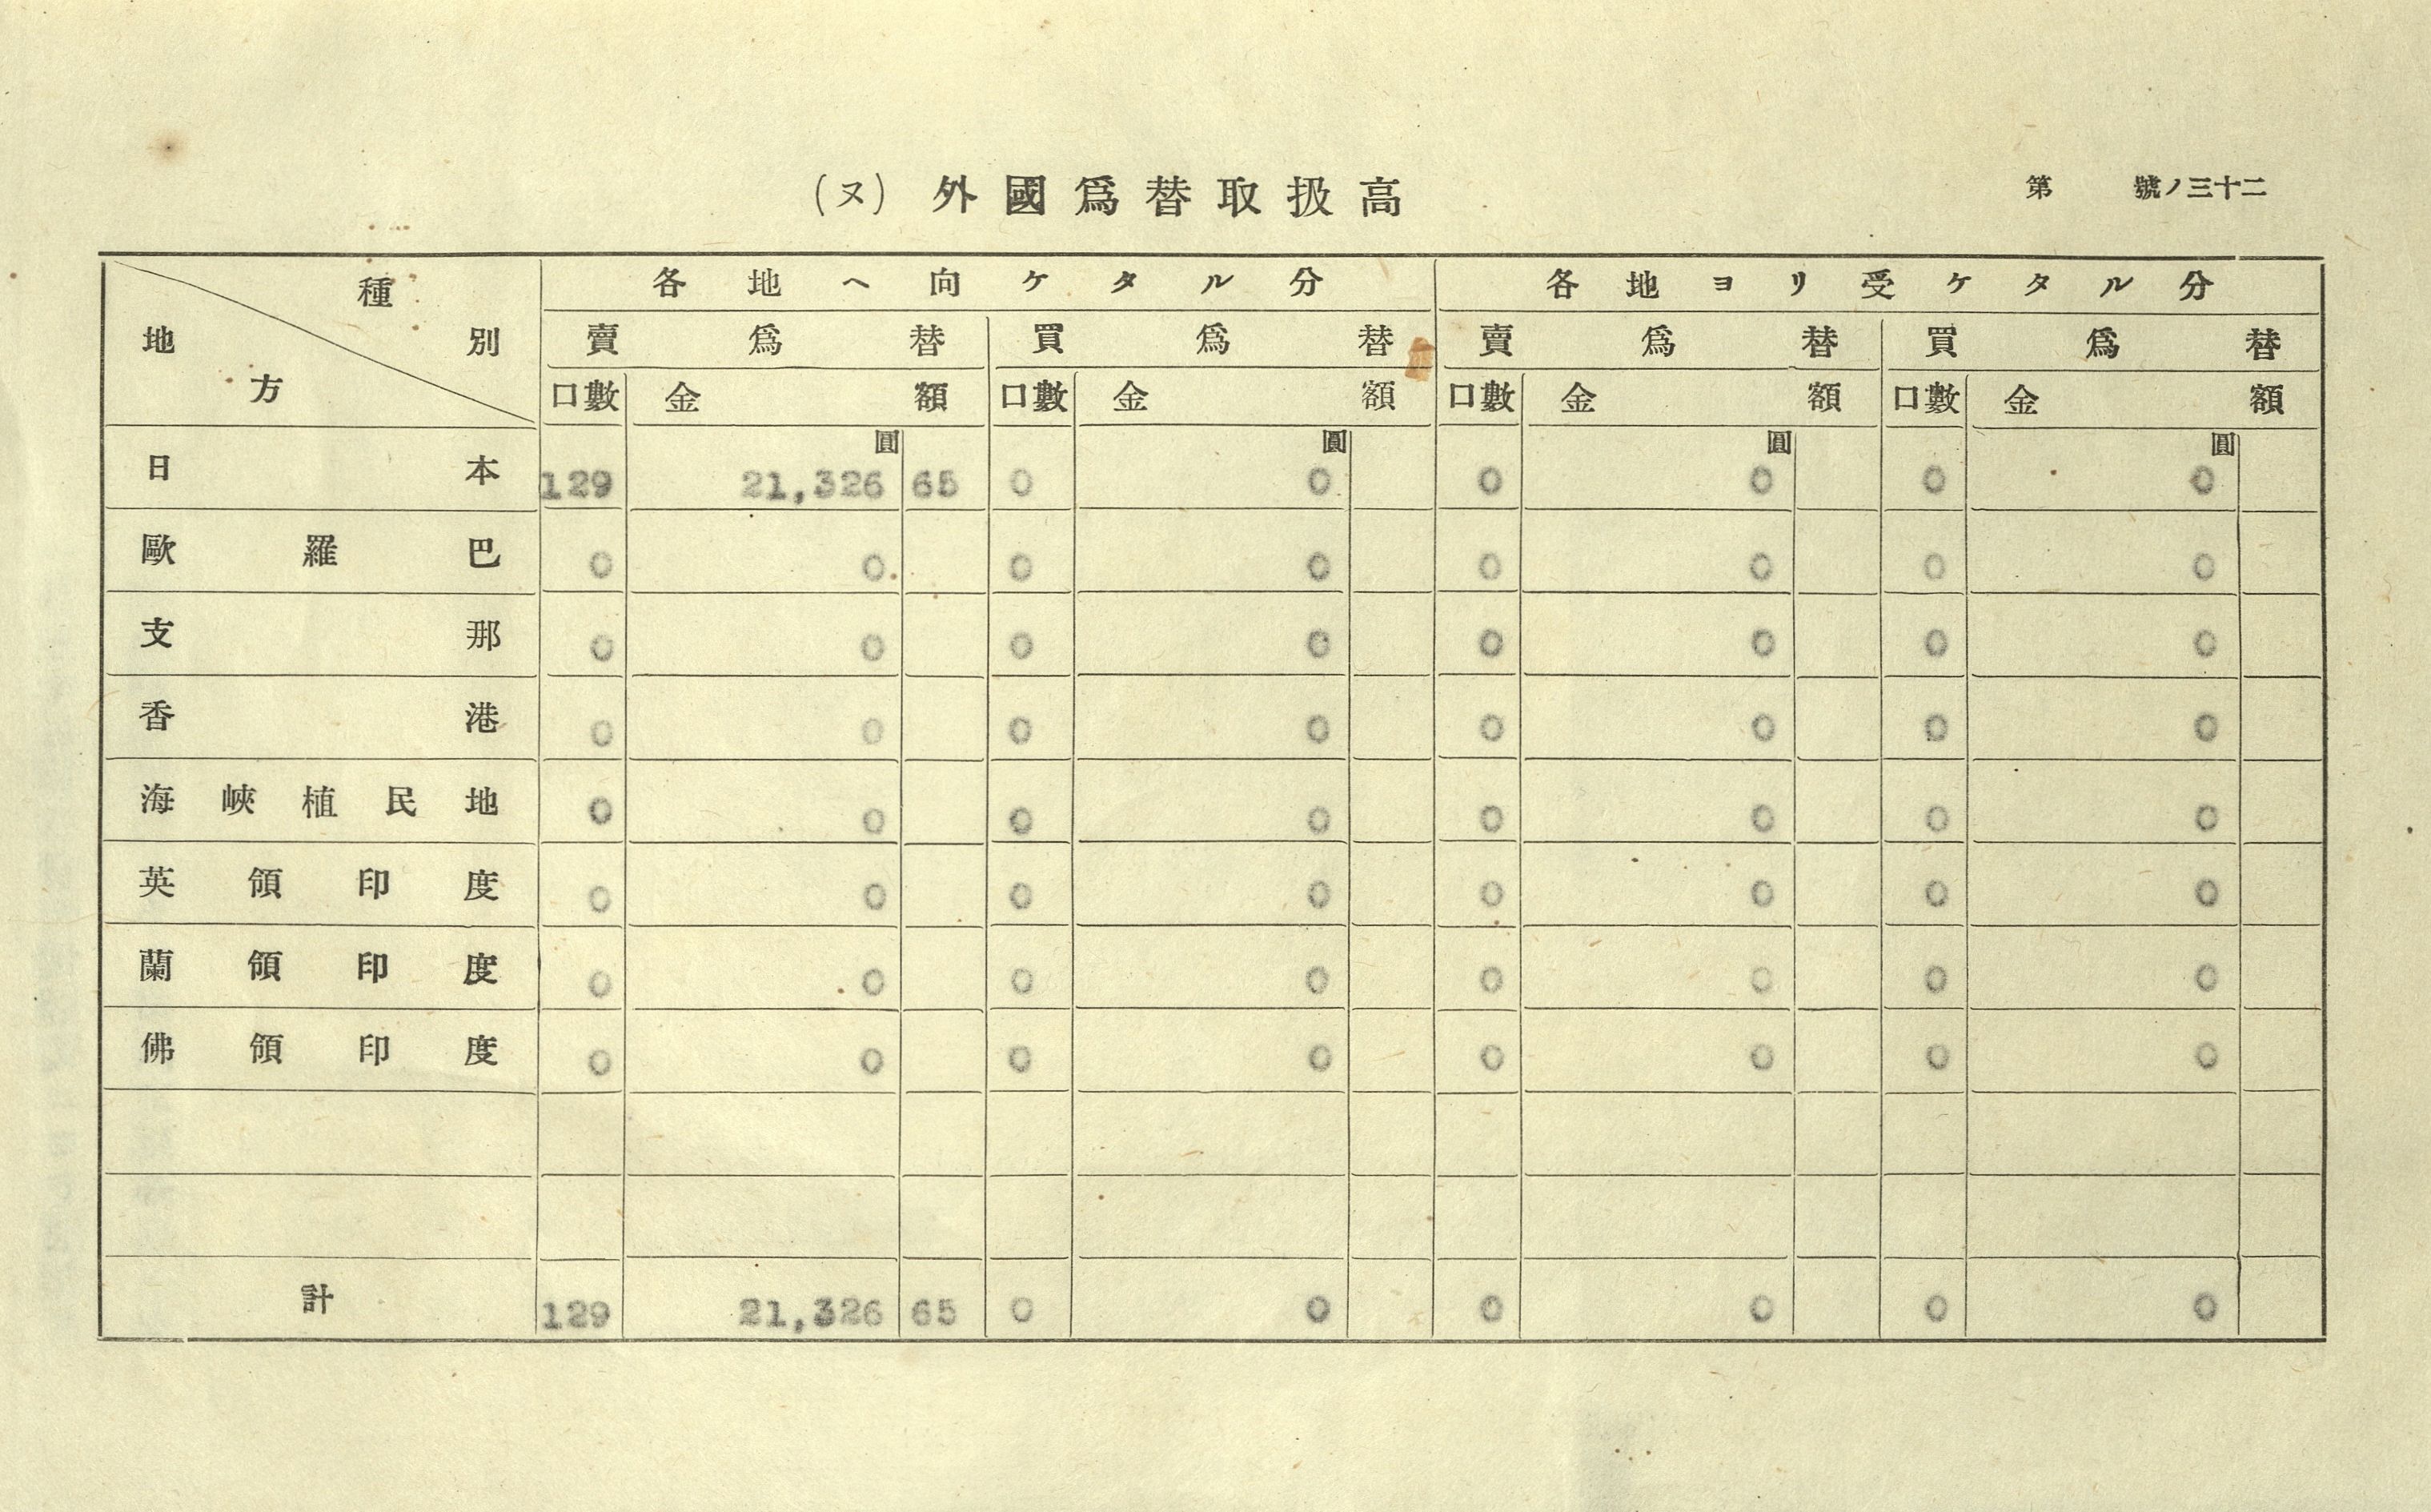 (ヌ) 外國爲替取扱高
第 號ノ三十二
種別 地方 各地ヘ向ケタル分 各地ヨリ受ケタル分
賣爲替 買爲替 賣爲替 買爲替
口數 金額 口數 金額 口數 金額 口數 金額
圓 圓 圓 圓
日本 129 21,326 65 0 0 0 0 0 0
歐羅巴 0 0 0 0 0 0 0 0
支那 0 0 0 0 0 0 0 0
香港 0 0 0 0 0 0 0 0
海峽植民地 0 0 0 0 0 0 0 0
英領印度 0 0 0 0 0 0 0 0
蘭領印度 0 0 0 0 0 0 0 0
佛領印度 0 0 0 0 0 0 0 0
計 129 21,326 65 0 0 0 0 0 0